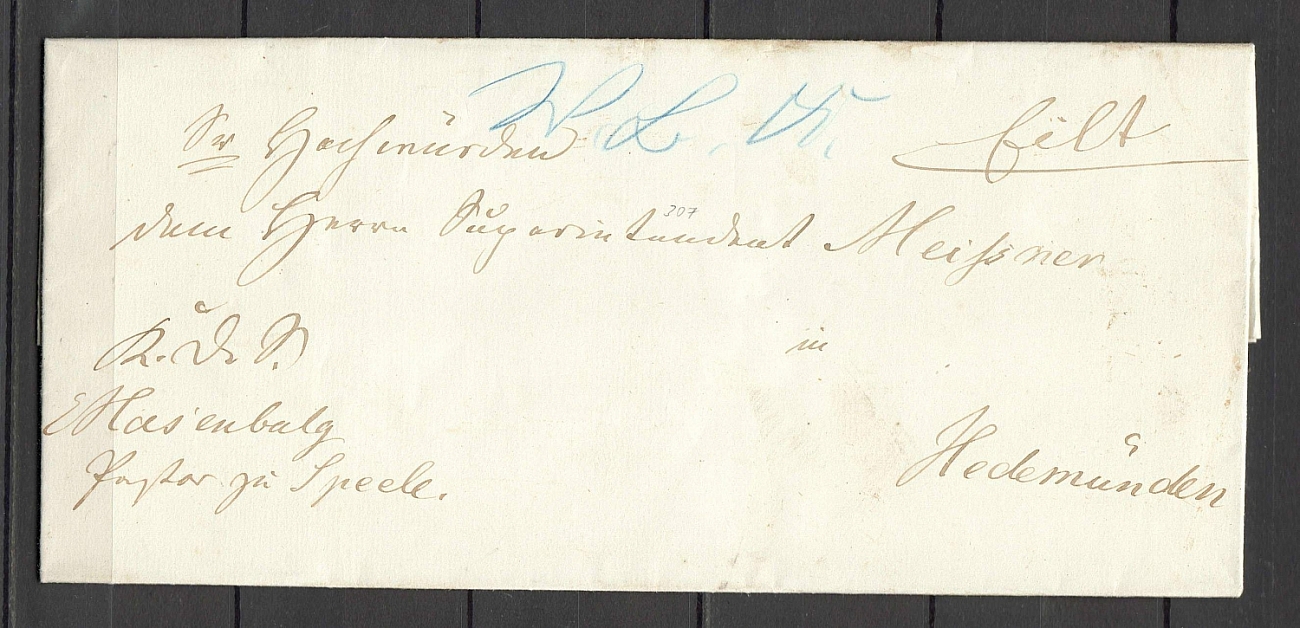 Eilt
Sr Hochwürden
dem Herrn Superintendent Meißner
307
in
Hedemünden
K. D. S.
Hasenbalg
Pastor zu Speele.